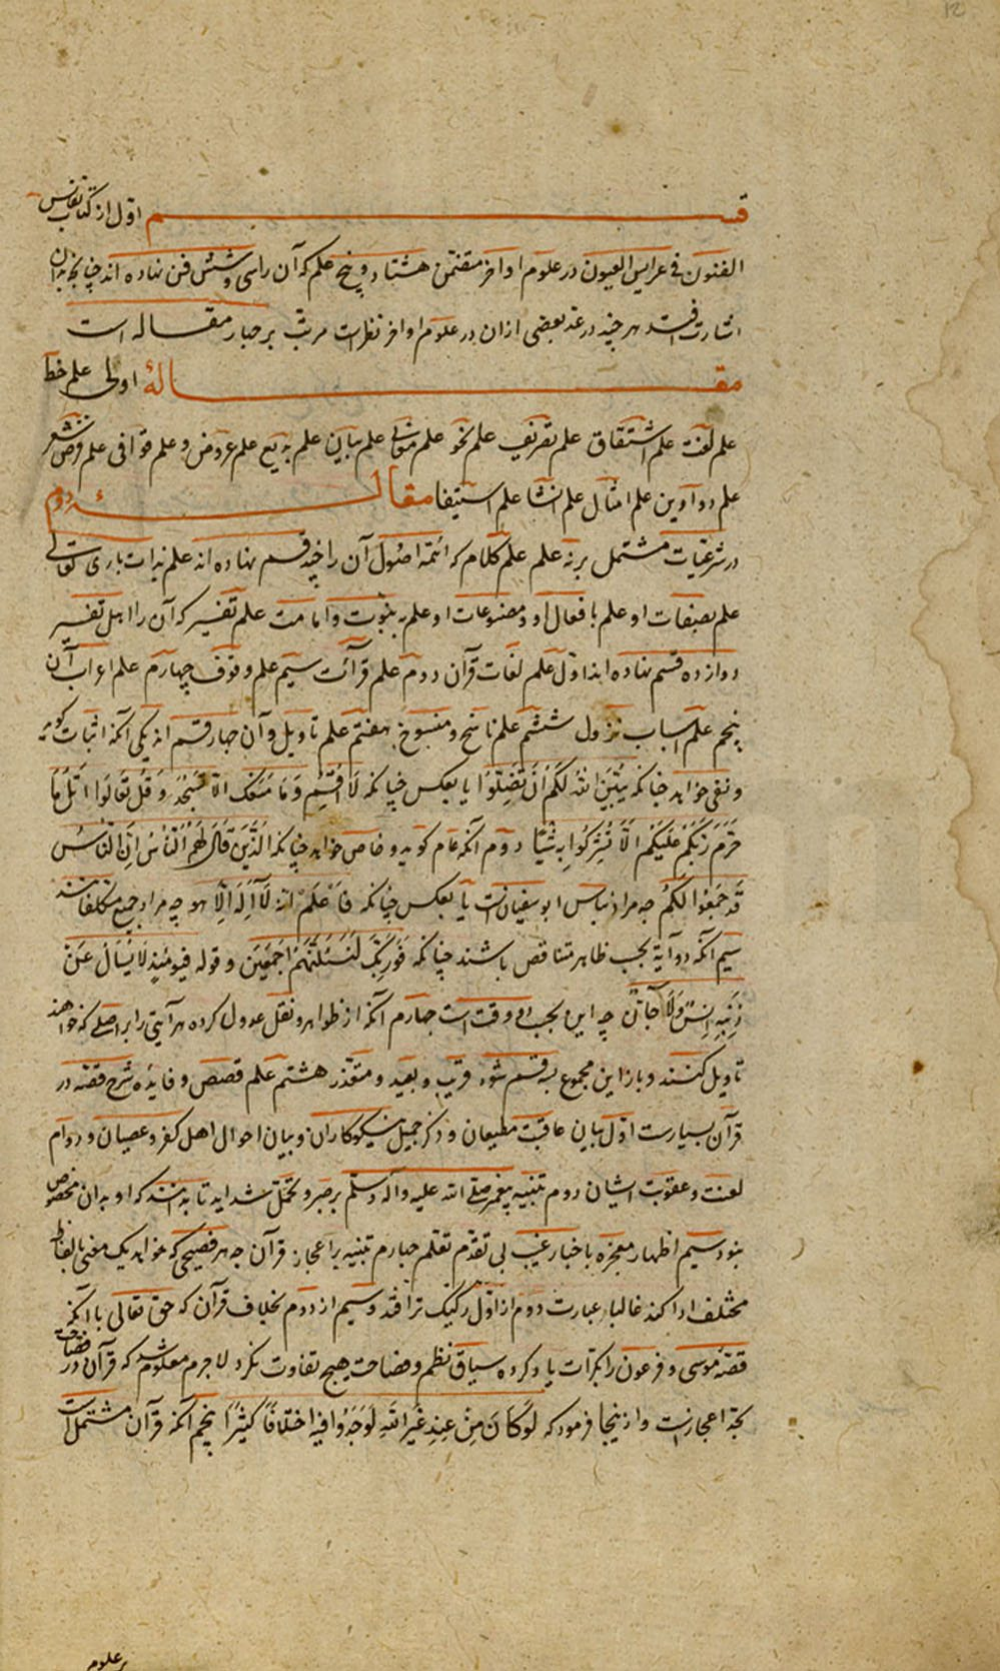 قسم اول از کتاب نفایس
الفنون فی عرایس العیون در علوم اواخر متضمن هشتاد و پنج علم که آن را سی و شش فن نهاده اند چنانچه بدان
اشارت افتد هر چند در عد بعضی ازان در علوم اواخر نظر است مرتب بر چهار مقاله است
مقالهٔ اولی علم خط
علم لغت علم اشتقاق علم تصریف علم نحو علم معانی علم بیان علم بدیع علم عروض و علم قوافی علم قرض شعر
علم دواوین علم امثال علم انشا علم استیفا مقالهٔ دوم
در شرعیات مشتمل بر نه علم علم کلام که ائمه اصول آن را چند قسم نهاده اند علم بذات باری تعالی
علم بصفات او علم بافعال او و مصنوعات او علم به نبوت و امامت علم تفسیر که آن را اهل تفسیر
دوازده قسم نهاده اند اول علم لغات قرآن دوم علم قرآئت سیم علم وقوف چهارم علم اعراب آن
پنجم علم اسباب نزول ششم علم ناسخ و منسوخ هفتم علم تاویل و آن چهار قسم اند یکی آنکه اثبات گویند
و نفی خواهد چنانکه یُبَیِّنُ اللّٰهُ لَکُمْ اَنْ تَضِلُّوا یا بعکس چنانکه لَا اُقْسِمُ وَمَا مَنَعَکَ اَلَّا تَسْجُدَ وَ قُلْ تَعَالَوْا اَتْلُ مَا
حَرَّمَ رَبُّکُمْ عَلَیْکُمْ اَلَّا تُشْرِکُوا بِهِ شَیْئًا دوم آنکه عام گوید و خاص خواهد چنانکه الَّذِینَ قَالَ لَهُمُ النَّاسُ اِنَّ النَّاسَ
قَدْ جَمَعُوا لَکُمْ چه مراد از ناس ابوسفیانست یا بعکس چنانکه فَاعْلَمْ اَنَّهُ لَا اِلَهَ اِلَّا هو چه مراد جمیع مکلفانند
سیم آنکه دو آیة بحسب ظاهر متناقض باشند چنانکه فَوَرَبِّکَ لَنَسْئَلَنَّهُمْ اَجْمَعِینَ و قوله فَیَوْمَئِذٍ لَا یُسْأَلُ عَنْ
ذَنْبِهِ اِنْسٌ وَلَا جَانٌّ چه این بحسب دو وقت است چهارم آنکه از ظواهر و نقل عدول کرده هر آیتی را بر اصلی که خواهند
تاویل کنند و باز این مجموع بسه قسم شود قریب و بعید و متعذر هشتم علم قصص و فایده شرح قصه در
قرآن بسیارست اول بیان عاقبت مطیعان و ذکر جمیل نیکوکاران و بیان احوال اهل کفر و عصیان و دوام
لعنت و عقوبت ایشان دوم تنبیه پیغمبر صلی الله علیه و آله و سلم بر صبر و تحمل شداید تا بدانند که او بدان مخصوص
نبود سیم اظهار معجزه باخبار غیب بی تقدم تعلم چهارم تنبیه بر اعجاز قرآن چه هر فصیحی که خواهد یک معنی بالفاظ
مختلف ادا کند غالبا در عبارت دوم از اول رکیک تر افتد و سیم از دوم بخلاف قرآن که حق تعالی با آنکه
قصه موسی و فرعون را بکرات یاد کرده سیاق نظم و فصاحت هیچ تفاوت نکرد لا جرم معلوم شد که قرآن در فصاحت
بحد اعجازست و از ینجا فرمود که لَوْ کَانَ مِنْ عِنْدِ غَیْرِ اللّٰهِ لَوَجَدُوا فِیهِ اخْتِلَافًا کَثِیرًا پنجم آنکه قرآن مشتمل است
علوم